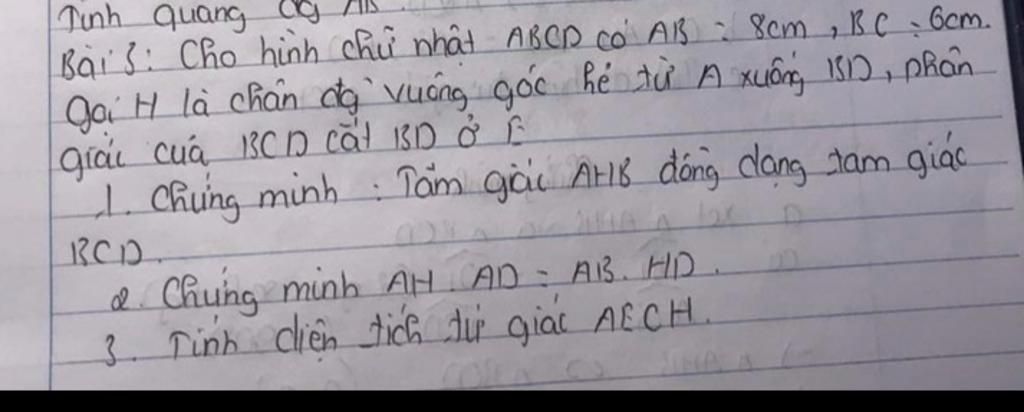 Tính quang đg AB.
Bài 3: Cho hình chữ nhật ABCD có AB = 8cm, BC = 6cm.
Gọi H là chân đg vuông góc kẻ từ A xuống BD, phân
giác của BCD cắt BD ở E
1. Chứng minh : Tam giác AHB đồng dạng tam giác
BCD.
2. Chứng minh AH . AD = AB. HD.
3. Tính diện tích tứ giác AECH.